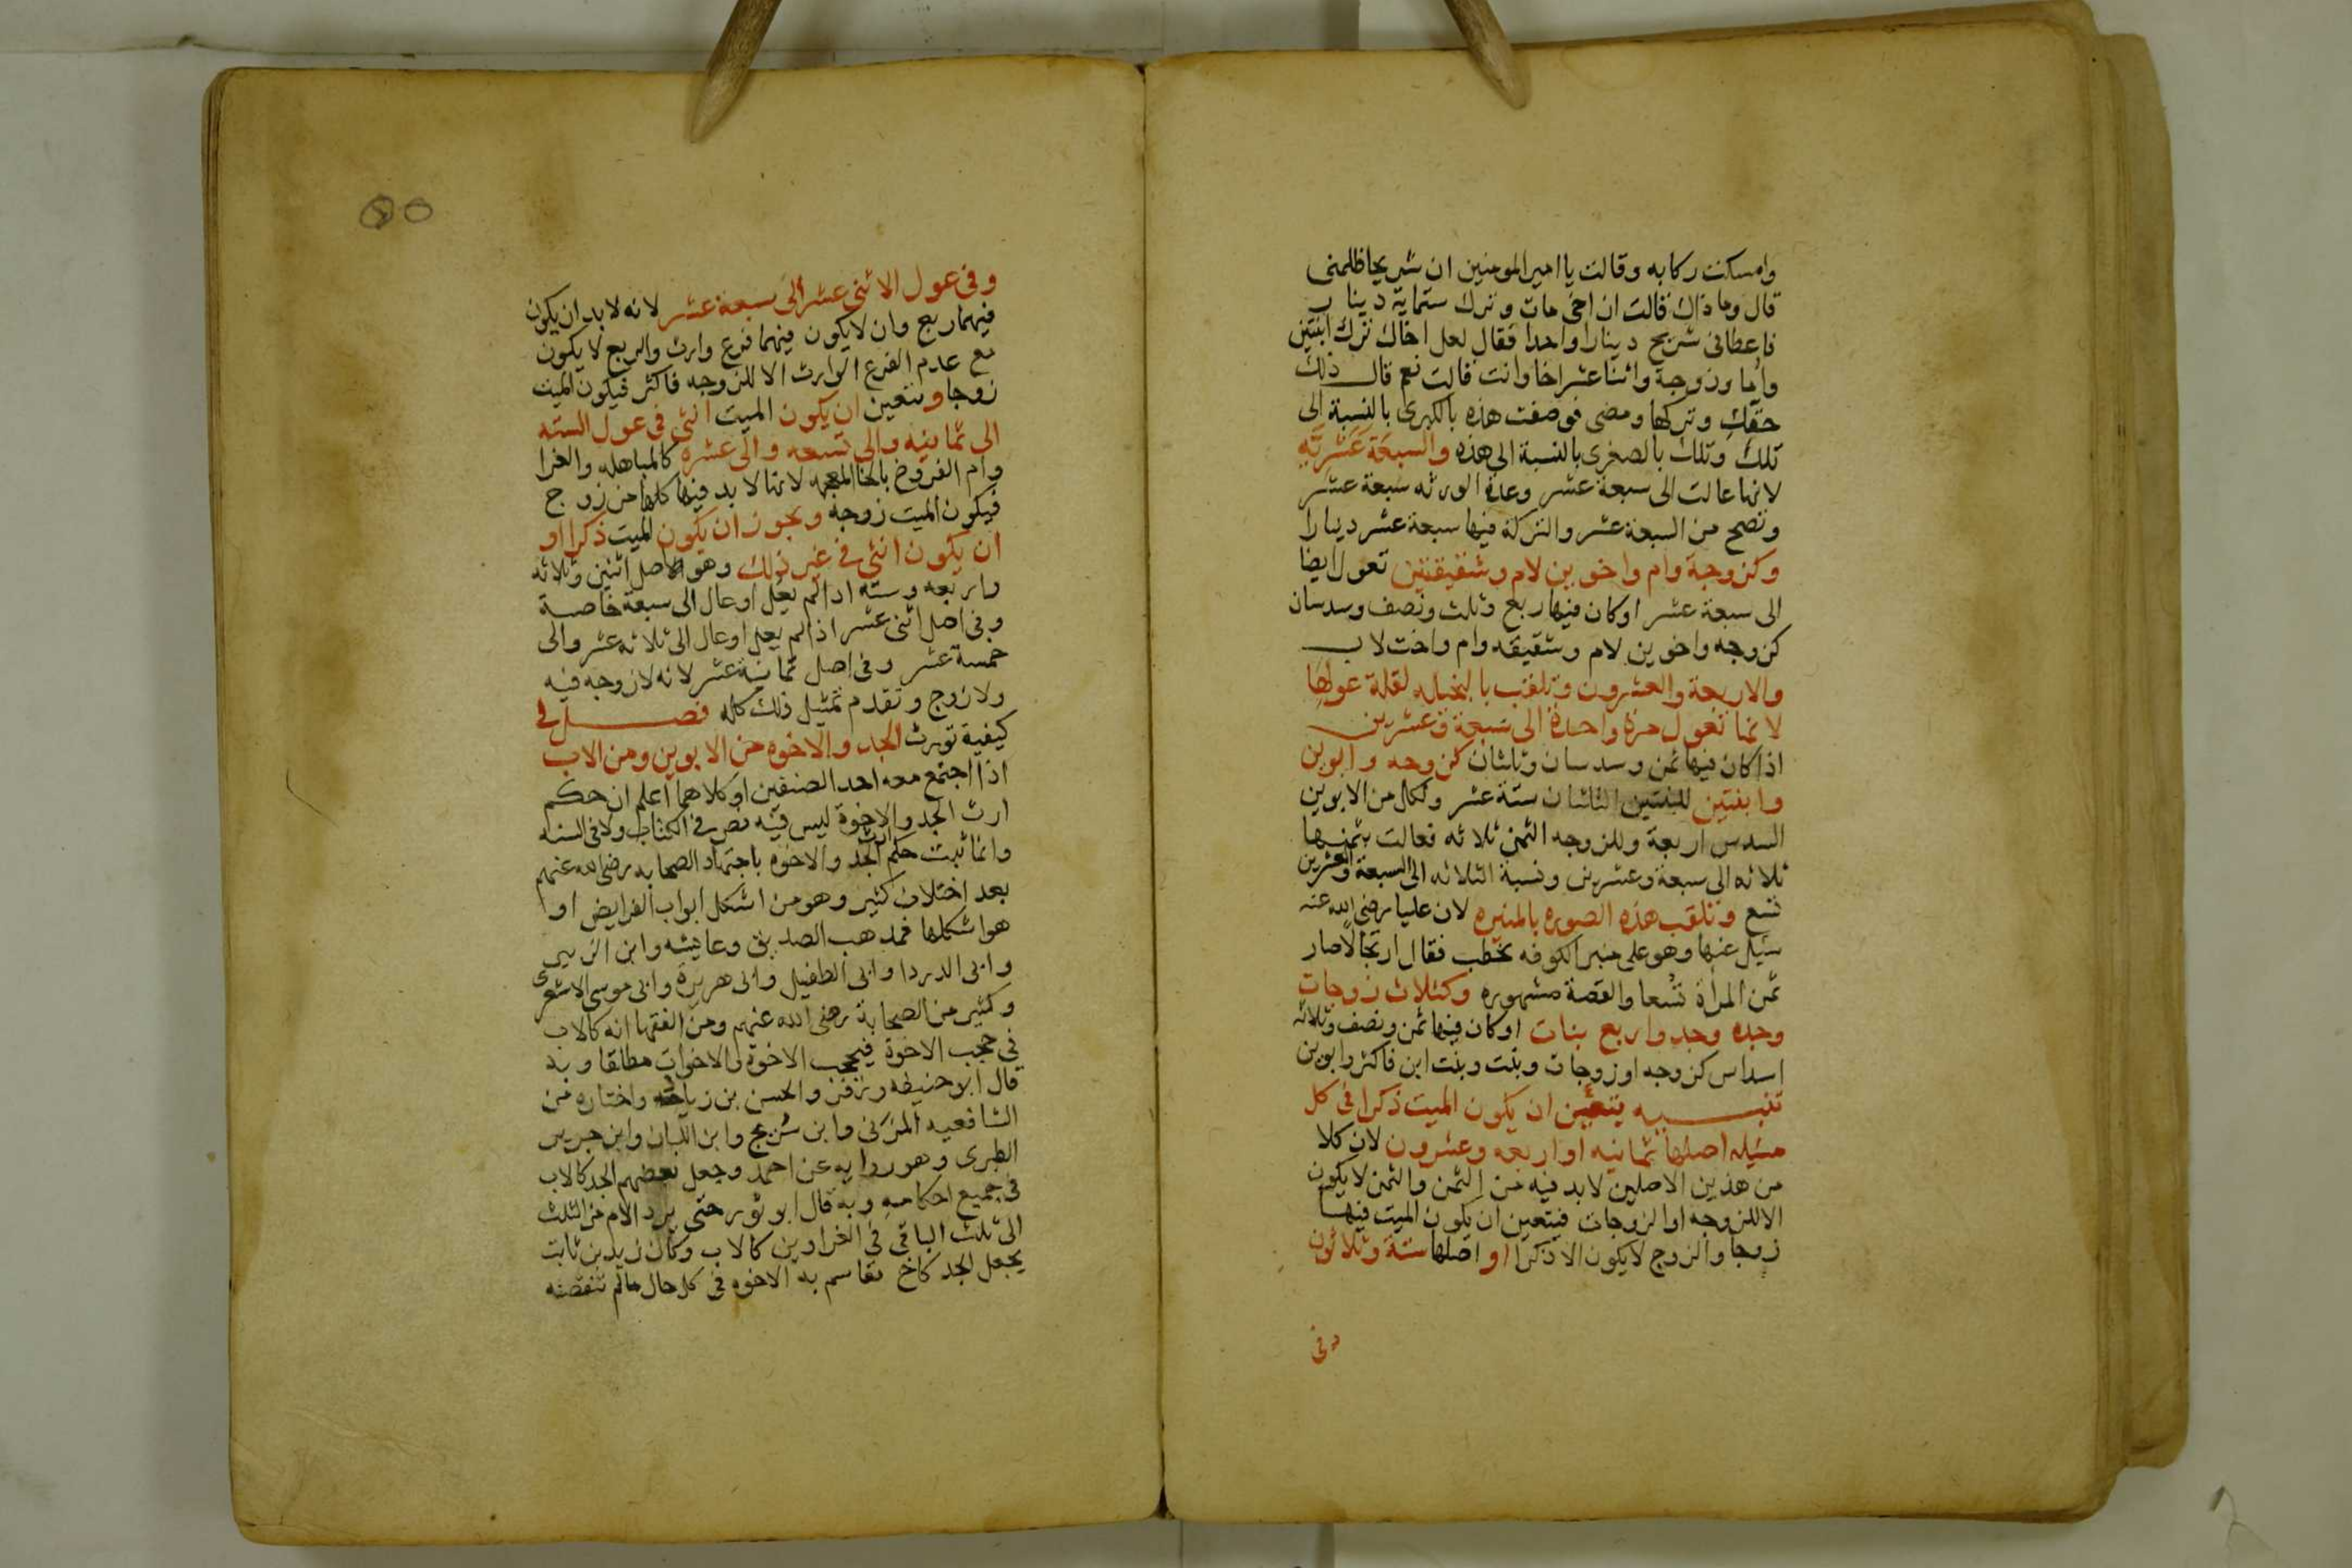 وامسكت ركابه وقالت يا امير المومنين ان شريحا ظلمنى
قال وما ذاك قالت ان اخى مات وترك ستماية دينار
فاعطانى شريح دينارا واحدا فقال لعل اخاك ترك ابنتين
واما وزوجة واثنا عشر اخا وانت قالت نعم قال ذلك
حقك وتركها ومضى فوصفت هذه بالكبرى بالنسبة الى
تلك وتلك بالصغرى بالنسبة الى هذه والسبعة عشرية
لانها عالت الى سبعة عشر وعدة الورثه سبعة عشر
وتصح من السبعة عشر والتركة فيها سبعة عشر دينارا
وكزوجة وام واخوين لام وشقيقتين تعول ايضا
الى سبعة عشر اوكان فيها ربع وثلث ونصف وسدسان
كزوجه واخوين لام وشقيقه وام واخت لاب
والاربعة والعشرون وتلقب بالبخيله لقلة عولها
لانها تعول مرة واحدة الى سبعة وعشرين
اذا كان فيها ثمن وسدسان وثلثان كزوجه وابوين
وابنتين للبنتين الثلثان ستة عشر ولكل من الابوين
السدس اربعة وللزوجه الثمن ثلاثه فعالت بثمنها
ثلاثه الى سبعة وعشرين ونسبة الثلاثه الى السبعة والعشرين
تسع وتلقب هذه الصوره بالمنبريه لان عليا رضى الله عنه
سيل عنها وهو على منبر الكوفه يخطب فقال ارتجالا صار
ثمن المراة تسعا والقصة مشهوره وكثلاث زوجات
وجده وجد واربع بنات اوكان فيها ثمن ونصف وثلاثه
اسداس كزوجه او زوجات وبنت وبنت ابن فاكثر وابوين
تنبيه يتعين ان يكون الميت ذكرا فى كل
مسيله اصلها ثمانيه او اربعه وعشرون لان كلا
من هذين الاصلين لابد فيه من الثمن والثمن لا يكون
الا للزوجه او الزوجات فيتعين ان يكون الميت فيها
زوجا والزوج لا يكون الا ذكرا او اصلها ستة وثلاثون
وفى
وفى عول الاثنى عشر الى سبعة عشر لانه لابد ان يكون
فيهما ربع وان لا يكون فيهما فرع وارث والربع لا يكون
مع عدم الفرع الوارث الا للزوجه فاكثر فيكون الميت
زوجا ويتعين ان يكون الميت انثى فى عول السته
الى ثمانيه والى تسعه والى عشره كالمباهله والغرا
وام الفروخ بالخا المعجمه لانها لابد فيها كلها من زوج
فيكون الميت زوجه ويجوز ان يكون الميت ذكرا او
ان يكون انثى فى غير ذلك وهو اصل اثنين وثلاثه
واربعه وسته اذا لم يعل اوعال الى سبعة خاصة
وفى اصل اثنى عشر اذا لم يعل اوعال الى ثلاثه عشر والى
خمسة عشر وفى اصل ثمانية عشر لانه لا زوجه فيه
ولا زوج وتقدم تمثيل ذلك كله فصل فى
كيفية توريث الجد والاخوه من الابوين ومن الاب
اذا اجتمع معه احد الصنفين او كلاهما اعلم ان حكم
ارث الجد والاخوة ليس فيه نص فى الكتاب ولا فى السنه
وانما ثبت حكم ارث الجد والاخوه باجتهاد الصحابه رضى الله عنهم
بعد اختلاف كثير وهو من اشكل ابواب الفرايض او
هو اشكلها فمذهب الصديق وعايشه وابن الزبير
وابى الدردا وابى الطفيل وابى هريرة وابى موسى الاشعرى
وكثير من الصحابة رضى الله عنهم ومن الفقها انه كالاب
فى حجب الاخوة فيحجب الاخوة والاخوات مطلقا وبه
قال ابو حنيفه وزفر والحسن بن زياد واختاره من
الشافعيه المزنى وابن سريج وابن اللبان وابن جرير
الطبرى وهو روايه عن احمد وجعل بعضهم الجد كالاب
فى جميع احكامه وبه قال ابو ثور حتى يرد الام من الثلث
الى ثلث الباقى فى الغراوين كالاب وكان زيد بن ثابت
يجعل الجد كاخ تقاسم به الاخوه فى كل حال مالم تنقصه